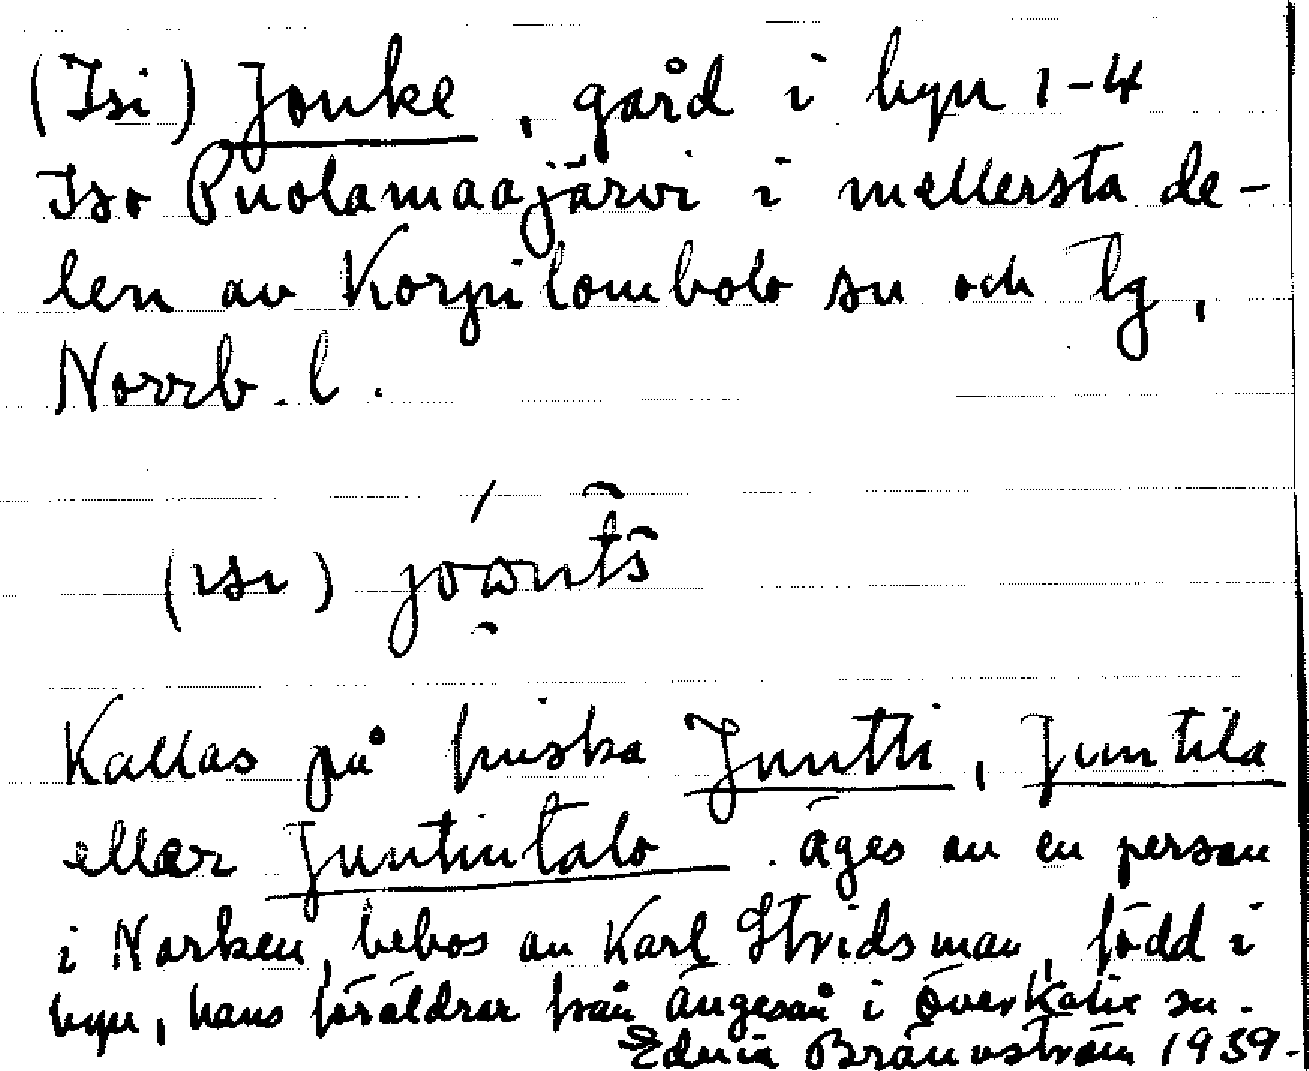 (Isi) Jonke, gård i byn 1-4
Iso Puolamaajärvi i mellersta de-
len av Korpilombolo sn och tg,
Norrb. l.
(ısı)
Kallas på finska Juntti, Juntila
eller Juntintalo. äges av en person
i Narken, bebos av Karl Stridsman, född i
byn, hans föräldrar från ängeså i överkalix sn.
Edvin Brännström 1939.